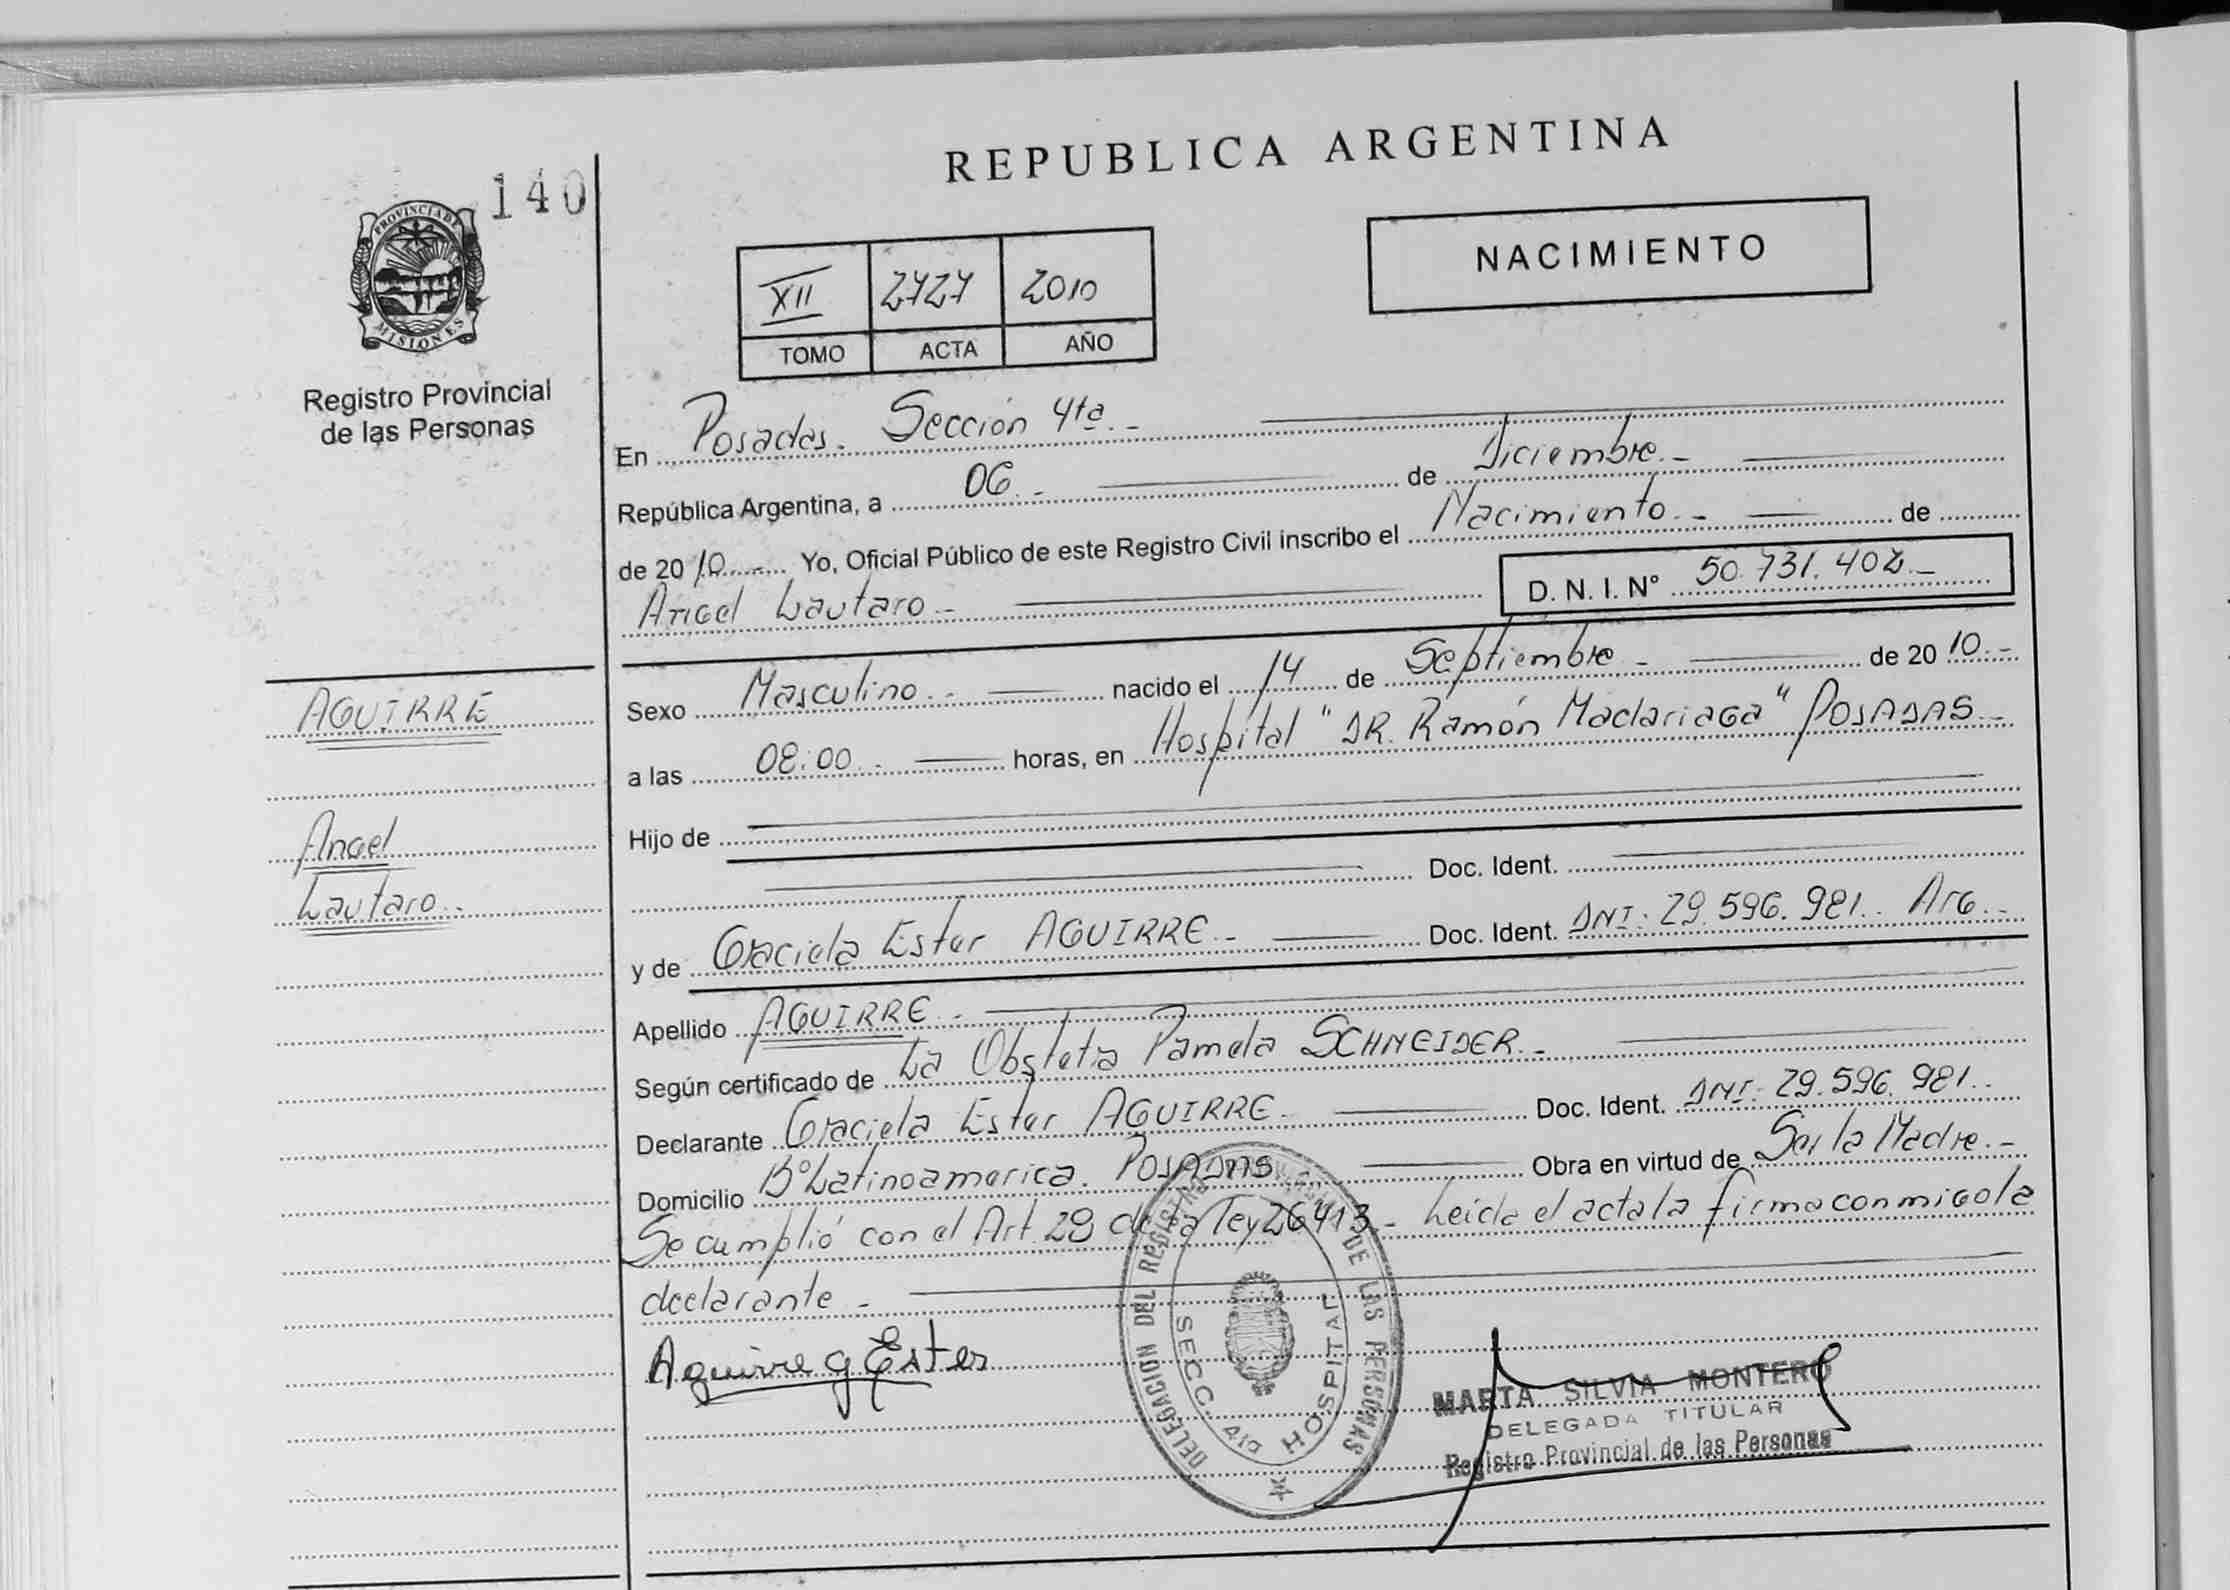 REPUBLICA ARGENTINA
140
PROVINCIA DE MISIONES
Registro Provincial
de las Personas
NACIMIENTO
XII 2727 2010
TOMO ACTA AÑO
En Posadas. Sección 4ta.-
República Argentina, a 06.- de Diciembre.-
de 2010.- Yo, Oficial Público de este Registro Civil inscribo el Nacimiento.- de
Angel Lautaro.- D. N. I. N° 50.731.402.-
AGUIRRE
Angel
Lautaro.-
Sexo Masculino.- nacido el 14 de Septiembre.- de 2010.-
a las 08:00.- horas, en Hospital "DR. Ramón Madariaga" POSADAS.-
Hijo de
Doc. Ident.
y de Graciela Ester AGUIRRE.- Doc. Ident. DNI: 29.596.981.. Arg.-
Apellido AGUIRRE.-
Según certificado de La Obsteta Pamela SCHNEIDER.-
Declarante Graciela Ester AGUIRRE.- Doc. Ident. DNI: 29.596.981..
Domicilio B° Latinoamerica. POSADAS.- Obra en virtud de Ser la Madre.-
Se cumplió con el Art. 28 de la ley 26413.- Leida el acta la firma conmigo la
declarante.-
Aguirre g Ester
DELEGACION DEL REGISTRO PROVINCIAL DE LAS PERSONAS
SECC. 4ta HOSPITAL
MARTA SILVIA MONTERO
DELEGADA TITULAR
Registro Provincial de las Personas